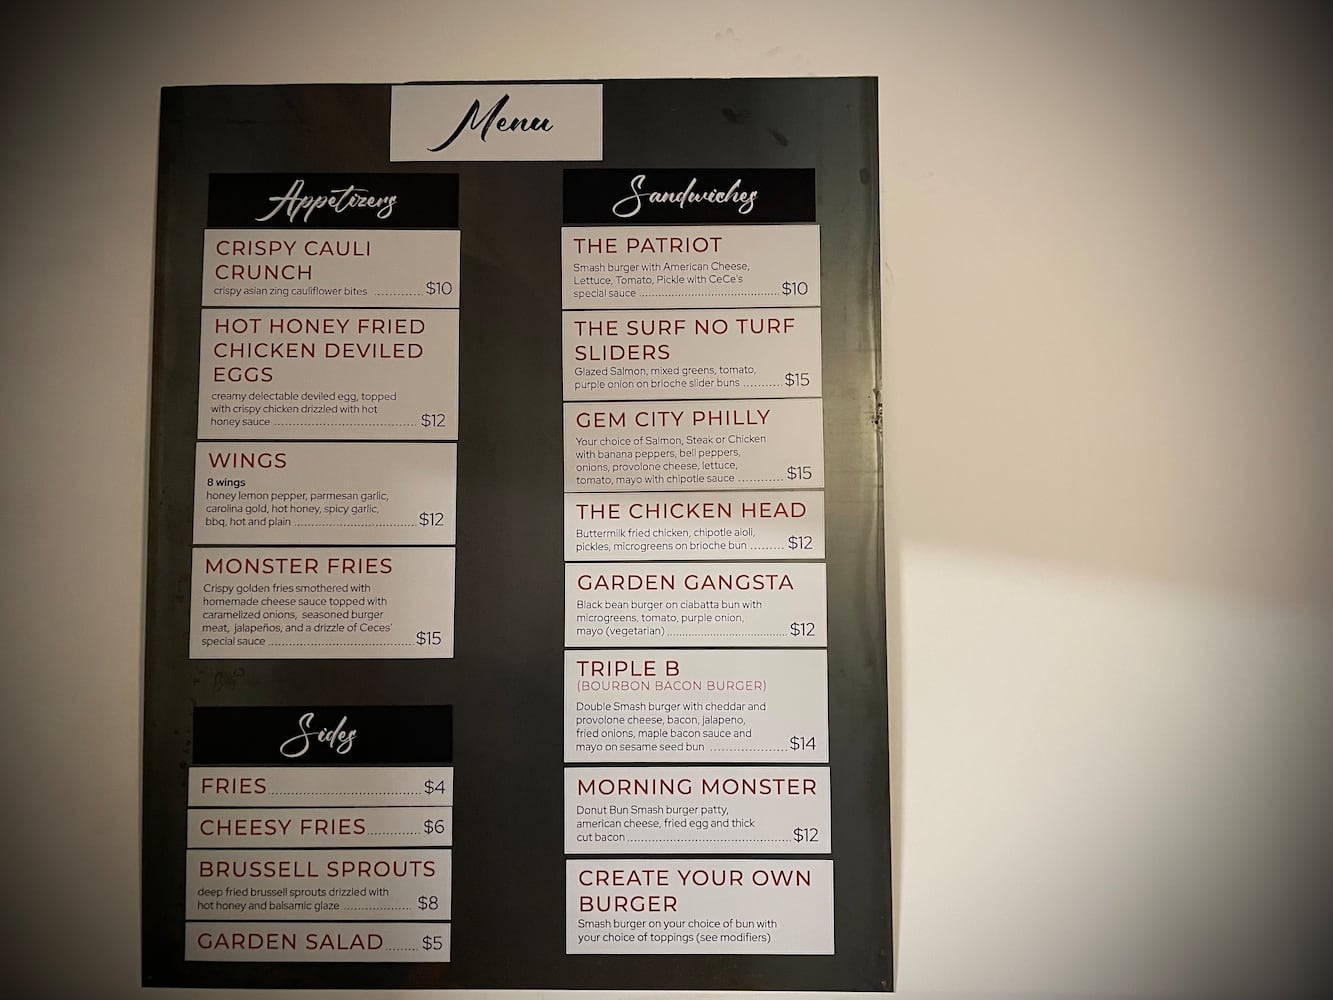 Menu
Appetizers
CRISPY CAULI
CRUNCH
crispy asian zing cauliflower bites ............ $10
HOT HONEY FRIED
CHICKEN DEVILED
EGGS
creamy delectable deviled egg, topped
with crispy chicken drizzled with hot
honey sauce ................................... $12
WINGS
8 wings
honey lemon pepper, parmesan garlic,
carolina gold, hot honey, spicy garlic,
bbq, hot and plain .............................. $12
MONSTER FRIES
Crispy golden fries smothered with
homemade cheese sauce topped with
caramelized onions, seasoned burger
meat, jalapeños, and a drizzle of Ceces'
special sauce ................................... $15
Sides
FRIES ................................... $4
CHEESY FRIES ............ $6
BRUSSELL SPROUTS
deep fried brussell sprouts drizzled with
hot honey and balsamic glaze ................ $8
GARDEN SALAD ........ $5
Sandwiches
THE PATRIOT
Smash burger with American Cheese,
Lettuce, Tomato, Pickle with CeCe's
special sauce ................................... $10
THE SURF NO TURF
SLIDERS
Glazed Salmon, mixed greens, tomato,
purple onion on brioche slider buns .......... $15
GEM CITY PHILLY
Your choice of Salmon, Steak or Chicken
with banana peppers, bell peppers,
onions, provolone cheese, lettuce,
tomato, mayo with chipotle sauce ............ $15
THE CHICKEN HEAD
Buttermilk fried chicken, chipotle aioli,
pickles, microgreens on brioche bun ......... $12
GARDEN GANGSTA
Black bean burger on ciabatta bun with
microgreens, tomato, purple onion,
mayo (vegetarian) .............................. $12
TRIPLE B
(BOURBON BACON BURGER)
Double Smash burger with cheddar and
provolone cheese, bacon, jalapeno,
fried onions, maple bacon sauce and
mayo on sesame seed bun .................... $14
MORNING MONSTER
Donut Bun Smash burger patty,
american cheese, fried egg and thick
cut bacon ........................................ $12
CREATE YOUR OWN
BURGER
Smash burger on your choice of bun with
your choice of toppings (see modifiers)